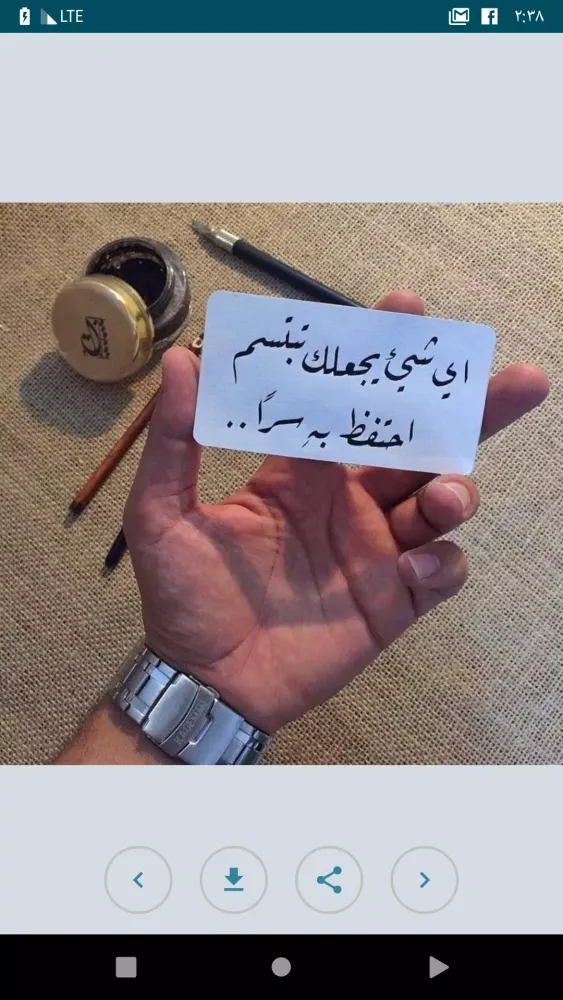 LTE
٢:٣٨
اي شيئ يجعلك تبتسم
احتفظ بهِ سراً..